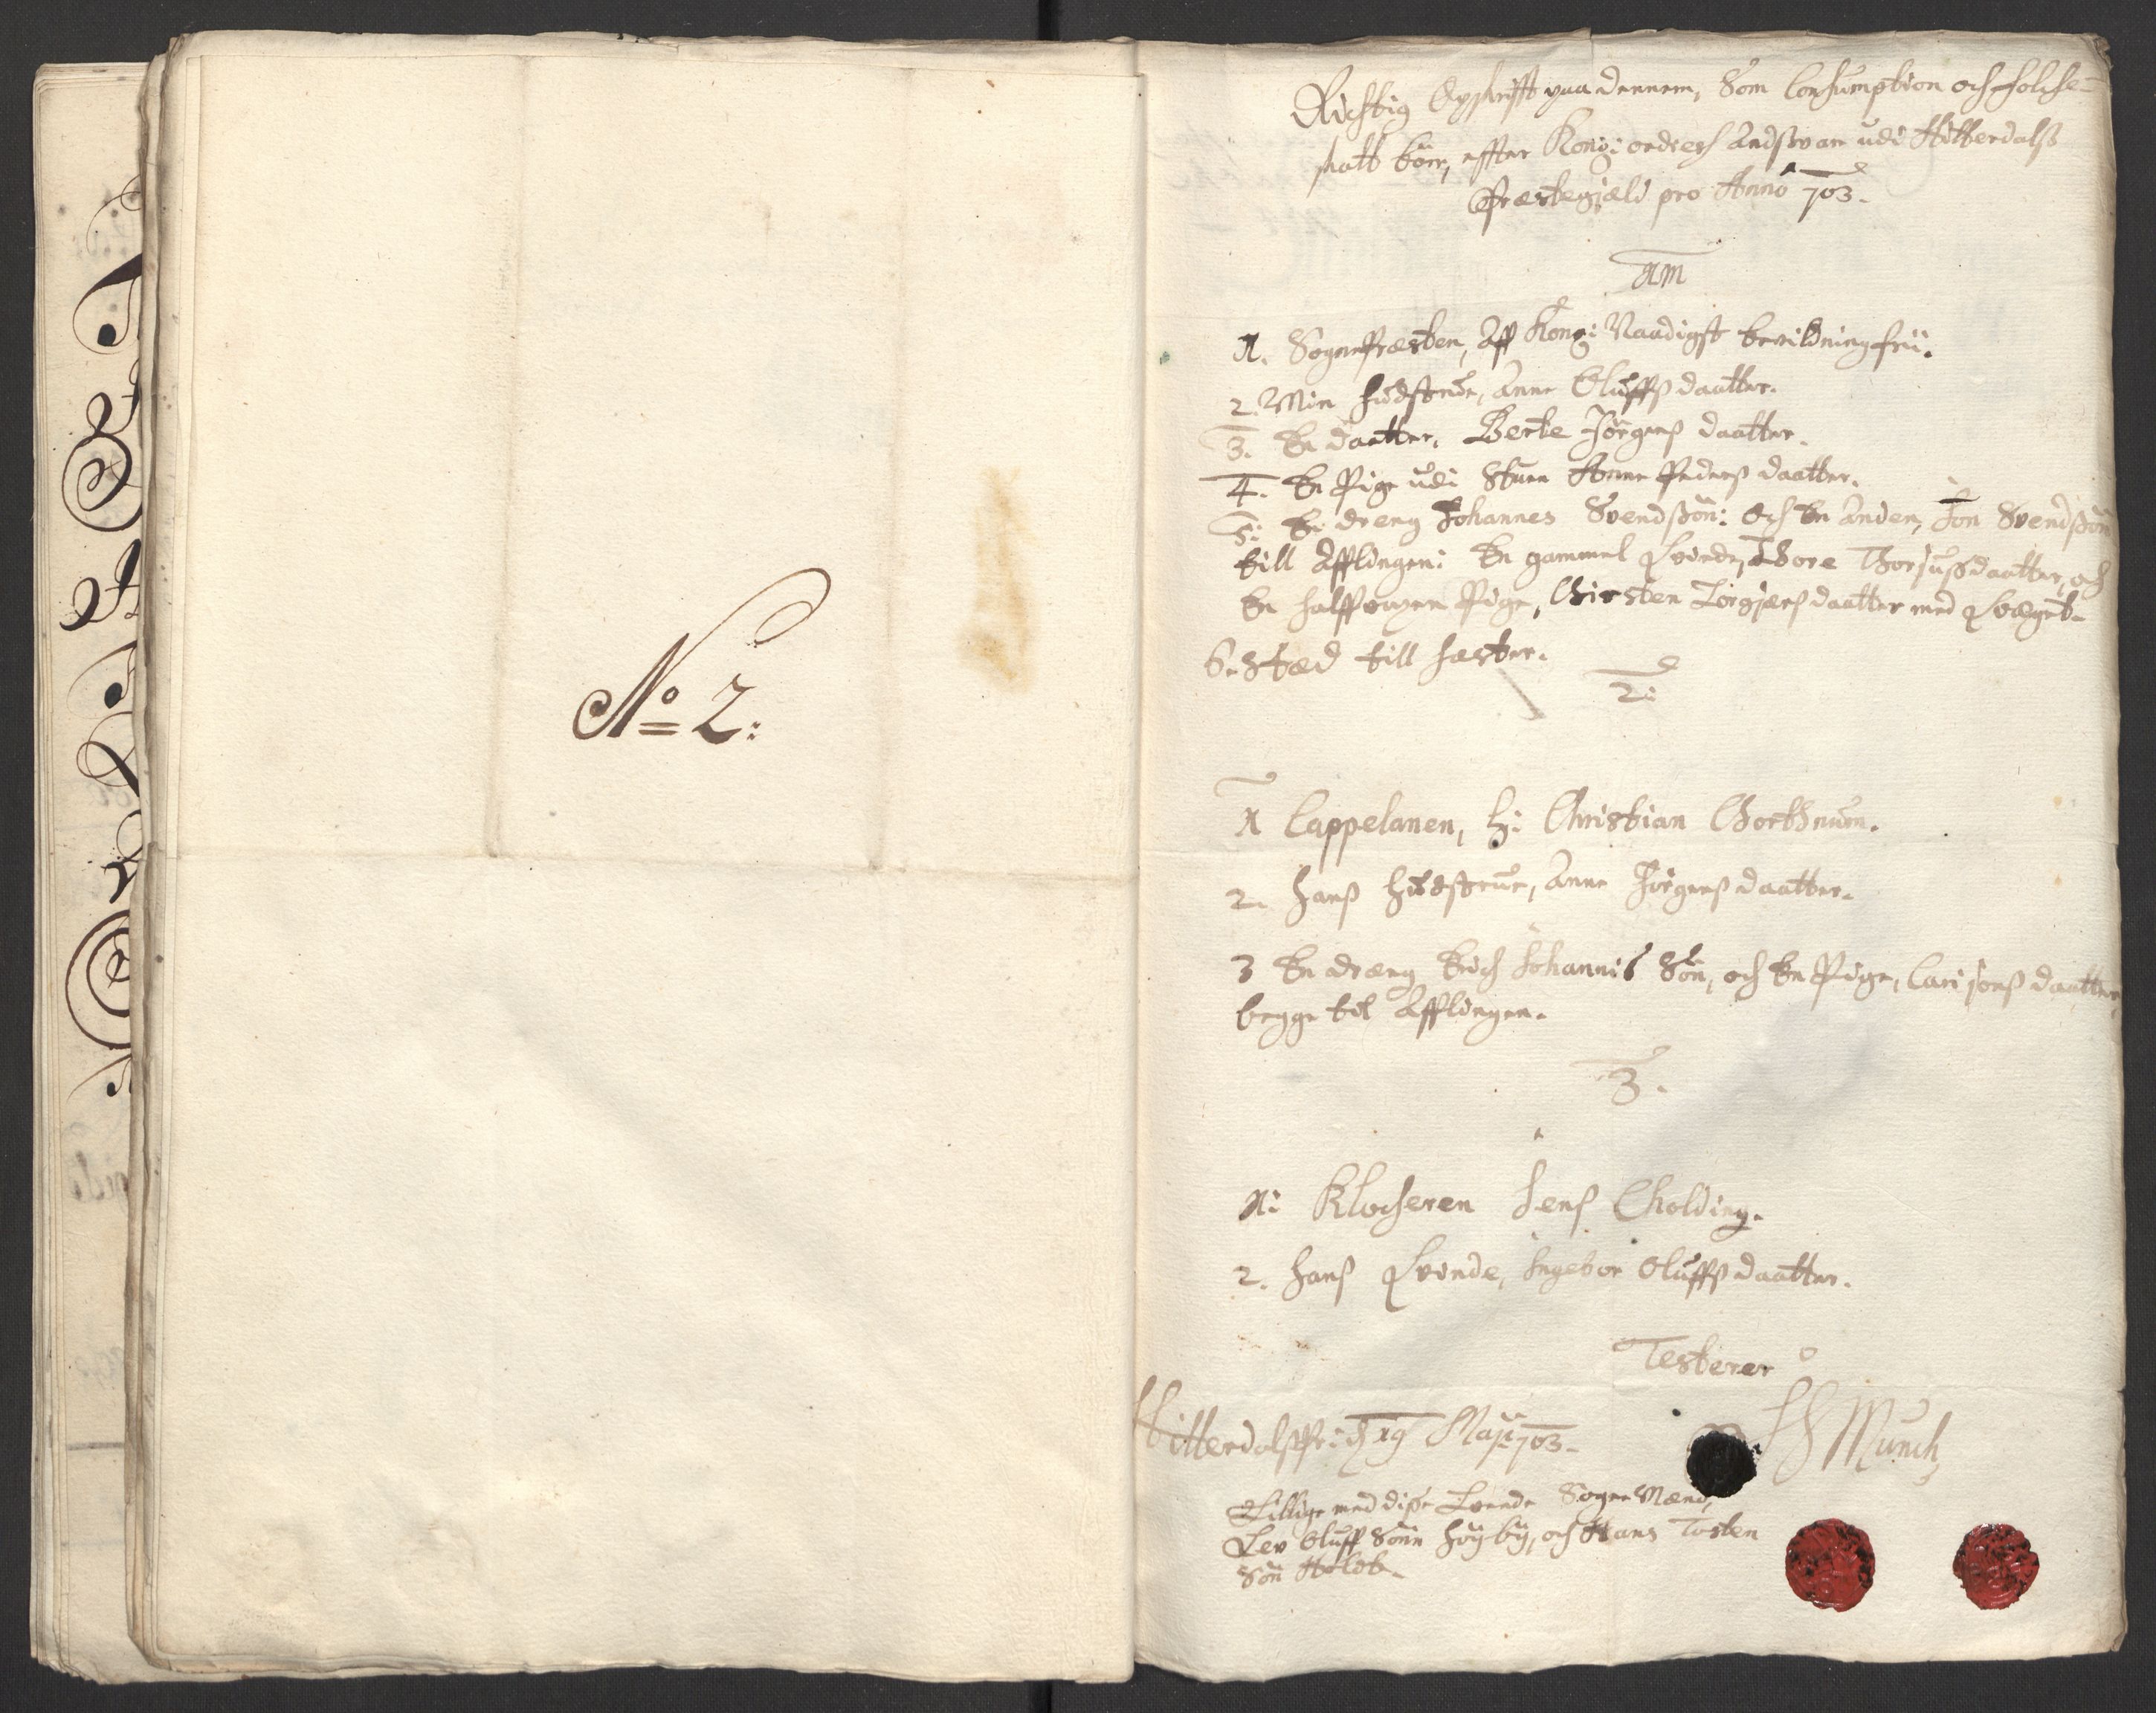 No 2:
Richtig Opskrifft paa dennem, Som Consumption och folche-
skatt bør, effter Kong: ordres Andsvare udi Hitterdals
Præstegjæld pro Anno 703.
1. SognePræsten, Aff Kong: Naadigst bevildning frü.
2. Min hüdstrüe, Anne Olüffsdaatter.
3. En daatter, Berte Jørgens daatter.
4. En Pige üdi Stuen Anne Peders daatter.
5: En dreng Johannes Svendssøn: Och En Anden, Jon Svendssøn
till Afflingen: En gammel qvinde, Thore Thorsusdaatter, och
En halffvoxen Pige, Chirsten Torgiærs daatter med qvæget
bestæd till faster.
2:
1 Cappelanen, h: Christian
2. hans hüdstrue, Anne Jørgensdaatter.
3 En dræng Erich Johannis Søn, och En Pige, Cari jons daatter
begge til Afflingen.
3.
1: Klocheren Jens Cholding.
2. hans qvinde, Ingebor Olüffsdaatter.
Testerer
Hitterdals 19 Maji 703.
Munch
Tillige med disse Tvende Sogne Mænd,
Lev Olüff Sønn høyby, och Hans Tosten
Søn Holdt.